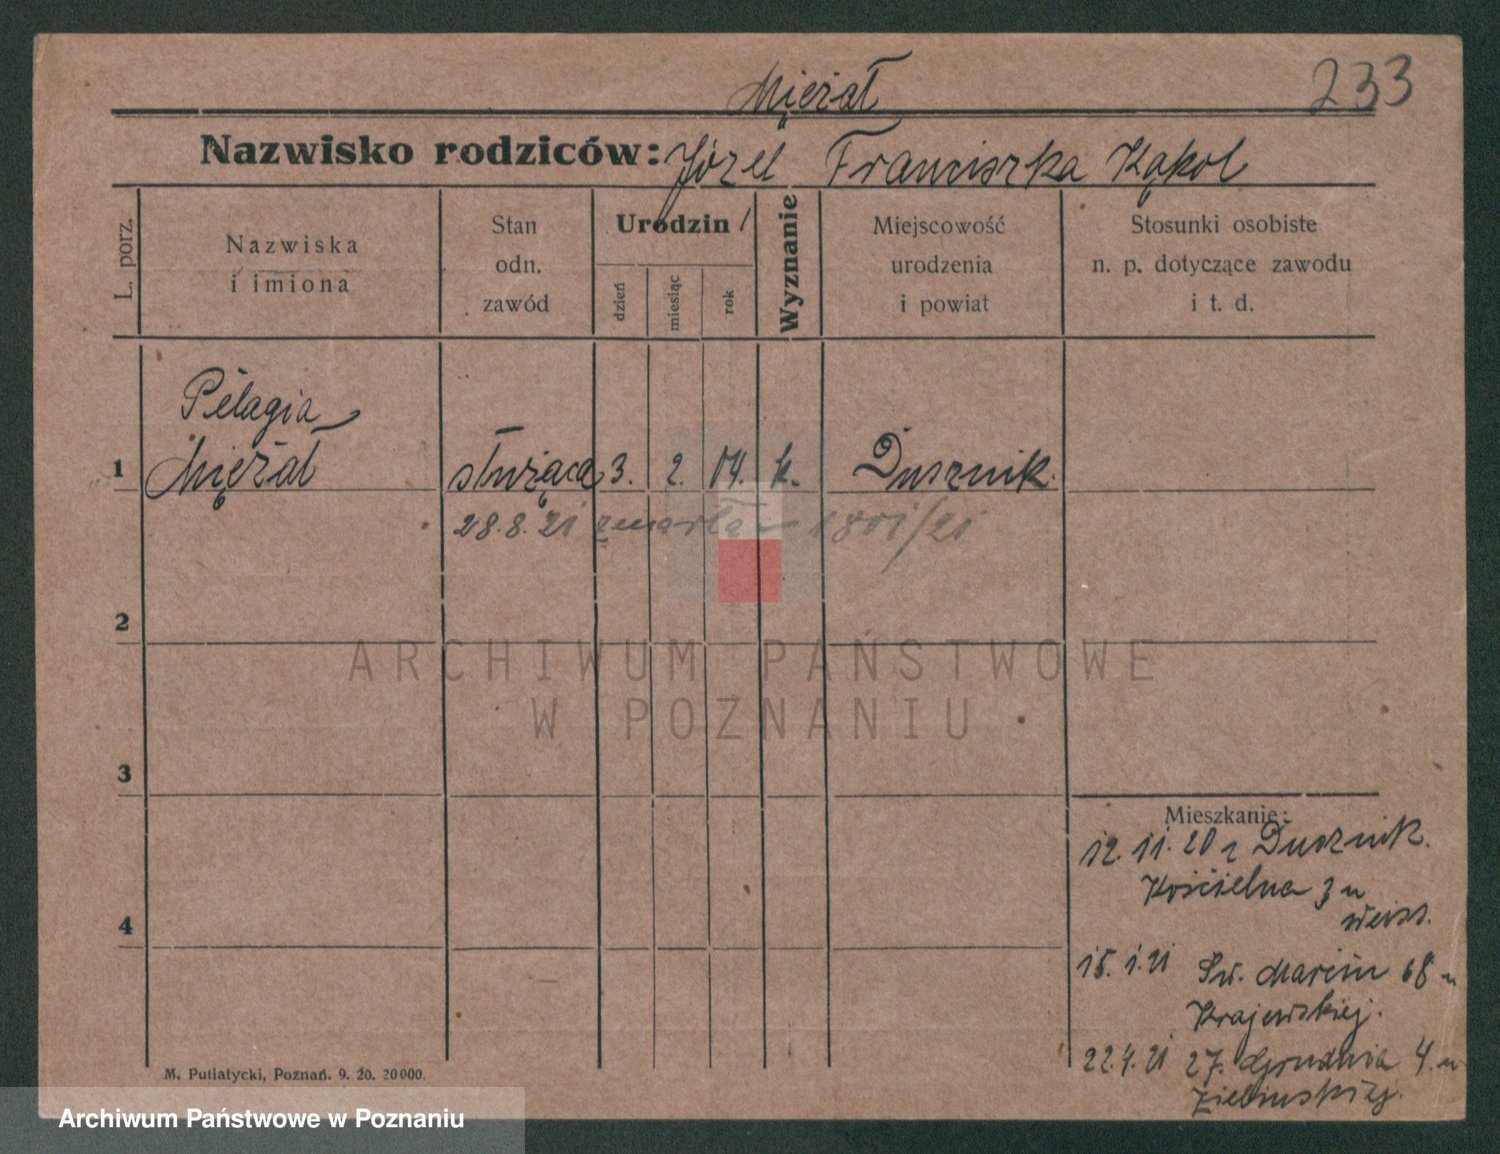 Miężał
233
Nazwisko rodziców: Józef Franciszka Kąkol
L. porz.
Nazwiska
i imiona
Stan
odn.
zawód
Urodzin
dzień
miesiąc
rok
Wyznanie
Miejscowość
urodzenia
i powiat
Stosunki osobiste
n. p. dotyczące zawodu
i t. d.
Pelagia
1 Miężał służąca 3. 2. 04. k. Dusznik.
28.8.21 zmarła 1801/21
2
ARCHIWUM PAŃSTWOWE
W POZNANIU
3
Mieszkanie:
12.11.20 z Dusznik.
Kościelna 3 u
Weiss.
4
15.1.21 Św. Marcin 68 u
Krajewskiej.
22.4.21 27. Grudnia 4. u
Zielinskiej.
M. Putiatycki, Poznań. 9. 20. 20000.
Archiwum Państwowe w Poznaniu